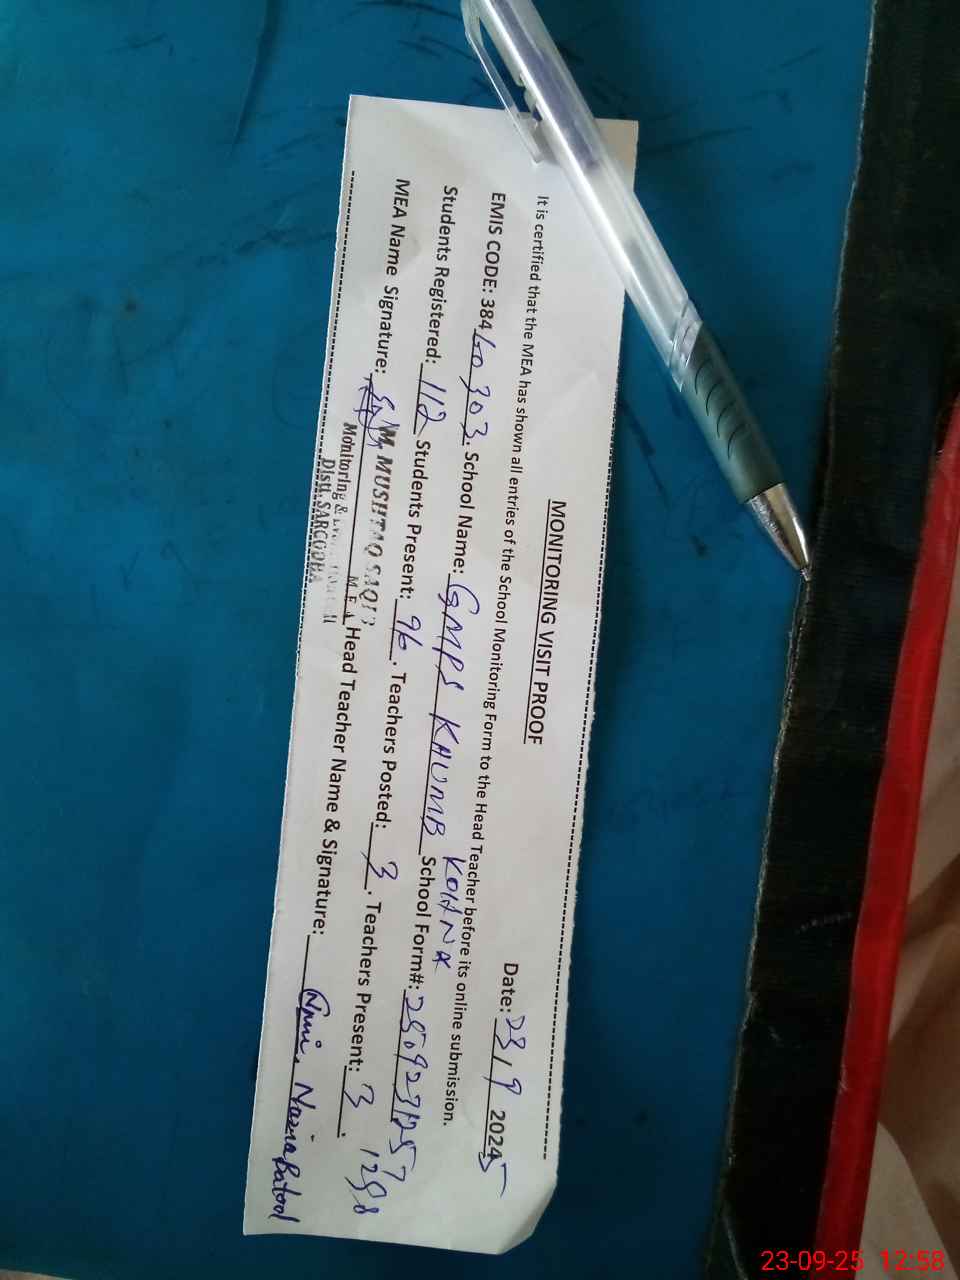 MONITORING VISIT PROOF
Date: 23/9 2025
It is certified that the MEA has shown all entries of the School Monitoring Form to the Head Teacher before its online submission.
EMIS CODE: 384 60 303. School Name: GMPS KHUMB KOHNA School Form#: 250923/1257 1258
Students Registered: 112 Students Present: 96. Teachers Posted: 3. Teachers Present: 3.
MEA Name Signature: M. MUSHTAQ SAQIB Head Teacher Name & Signature: Nazia Batool
M E A
Monitoring &
Distt. SARGODHA
23-09-25 12:58